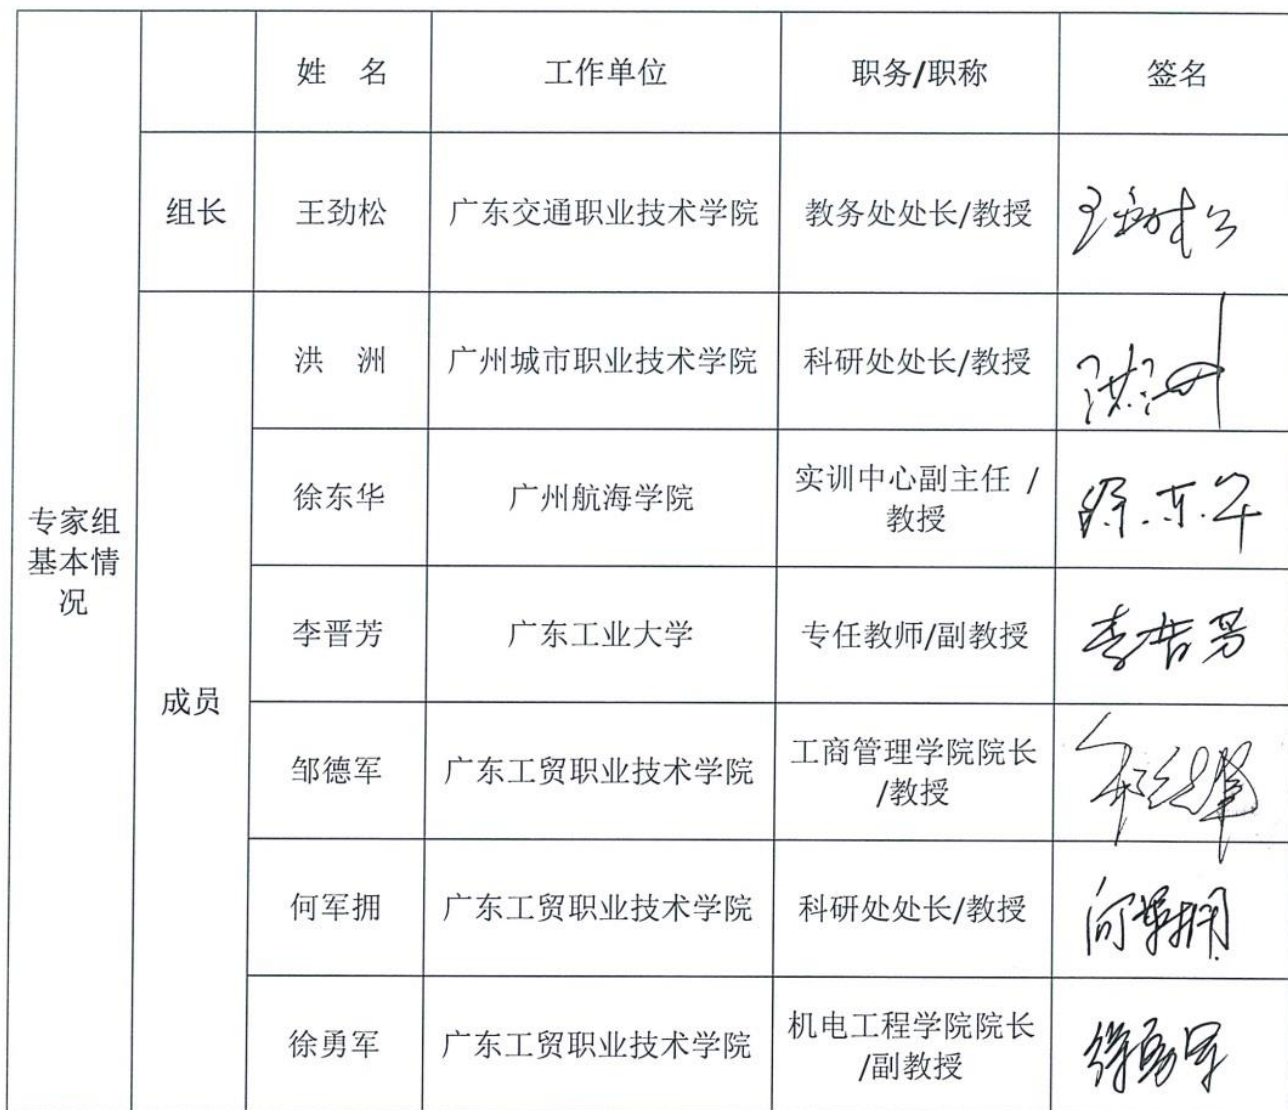 姓 名 工作单位 职务/职称 签名
组长 王劲松 广东交通职业技术学院 教务处处长/教授 王劲松
洪 洲 广州城市职业技术学院 科研处处长/教授 洪洲
徐东华 广州航海学院 实训中心副主任 /
教授 徐东华
专家组
基本情
况
李晋芳 广东工业大学 专任教师/副教授 李晋芳
成员
邹德军 广东工贸职业技术学院 工商管理学院院长
/教授 邹德军
何军拥 广东工贸职业技术学院 科研处处长/教授 何军拥
徐勇军 广东工贸职业技术学院 机电工程学院院长
/副教授 徐勇军